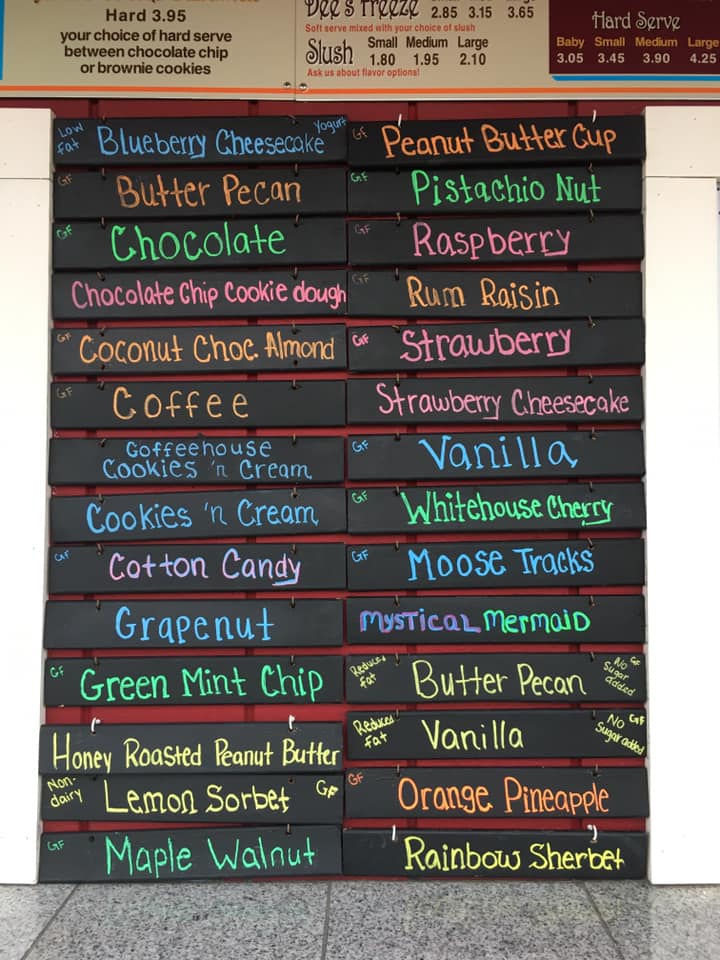 Hard 3.95
your choice of hard serve
between chocolate chip
or brownie cookies
Dee's Freeze 2.85 3.15 3.65
Soft serve mixed with your choice of slush
Small Medium Large
Slush 1.80 1.95 2.10
Ask us about flavor options!
Hard Serve
Baby Small Medium Large
3.05 3.45 3.90 4.25
Low fat Blueberry Cheesecake Yogurt
GF Butter Pecan
GF Chocolate
Chocolate Chip Cookie dough
GF Coconut Choc. Almond
GF Coffee
Coffeehouse
Cookies 'n Cream
Cookies 'n Cream
GF Cotton Candy
Grapenut
GF Green Mint Chip
Honey Roasted Peanut Butter
Non-dairy Lemon Sorbet GF
GF Maple Walnut
GF Peanut Butter Cup
GF Pistachio Nut
GF Raspberry
GF Rum Raisin
GF Strawberry
Strawberry Cheesecake
GF Vanilla
GF Whitehouse Cherry
GF Moose Tracks
Mystical Mermaid
Reduced fat Butter Pecan No Sugar added GF
Reduced fat Vanilla No Sugar added GF
GF Orange Pineapple
Rainbow Sherbet